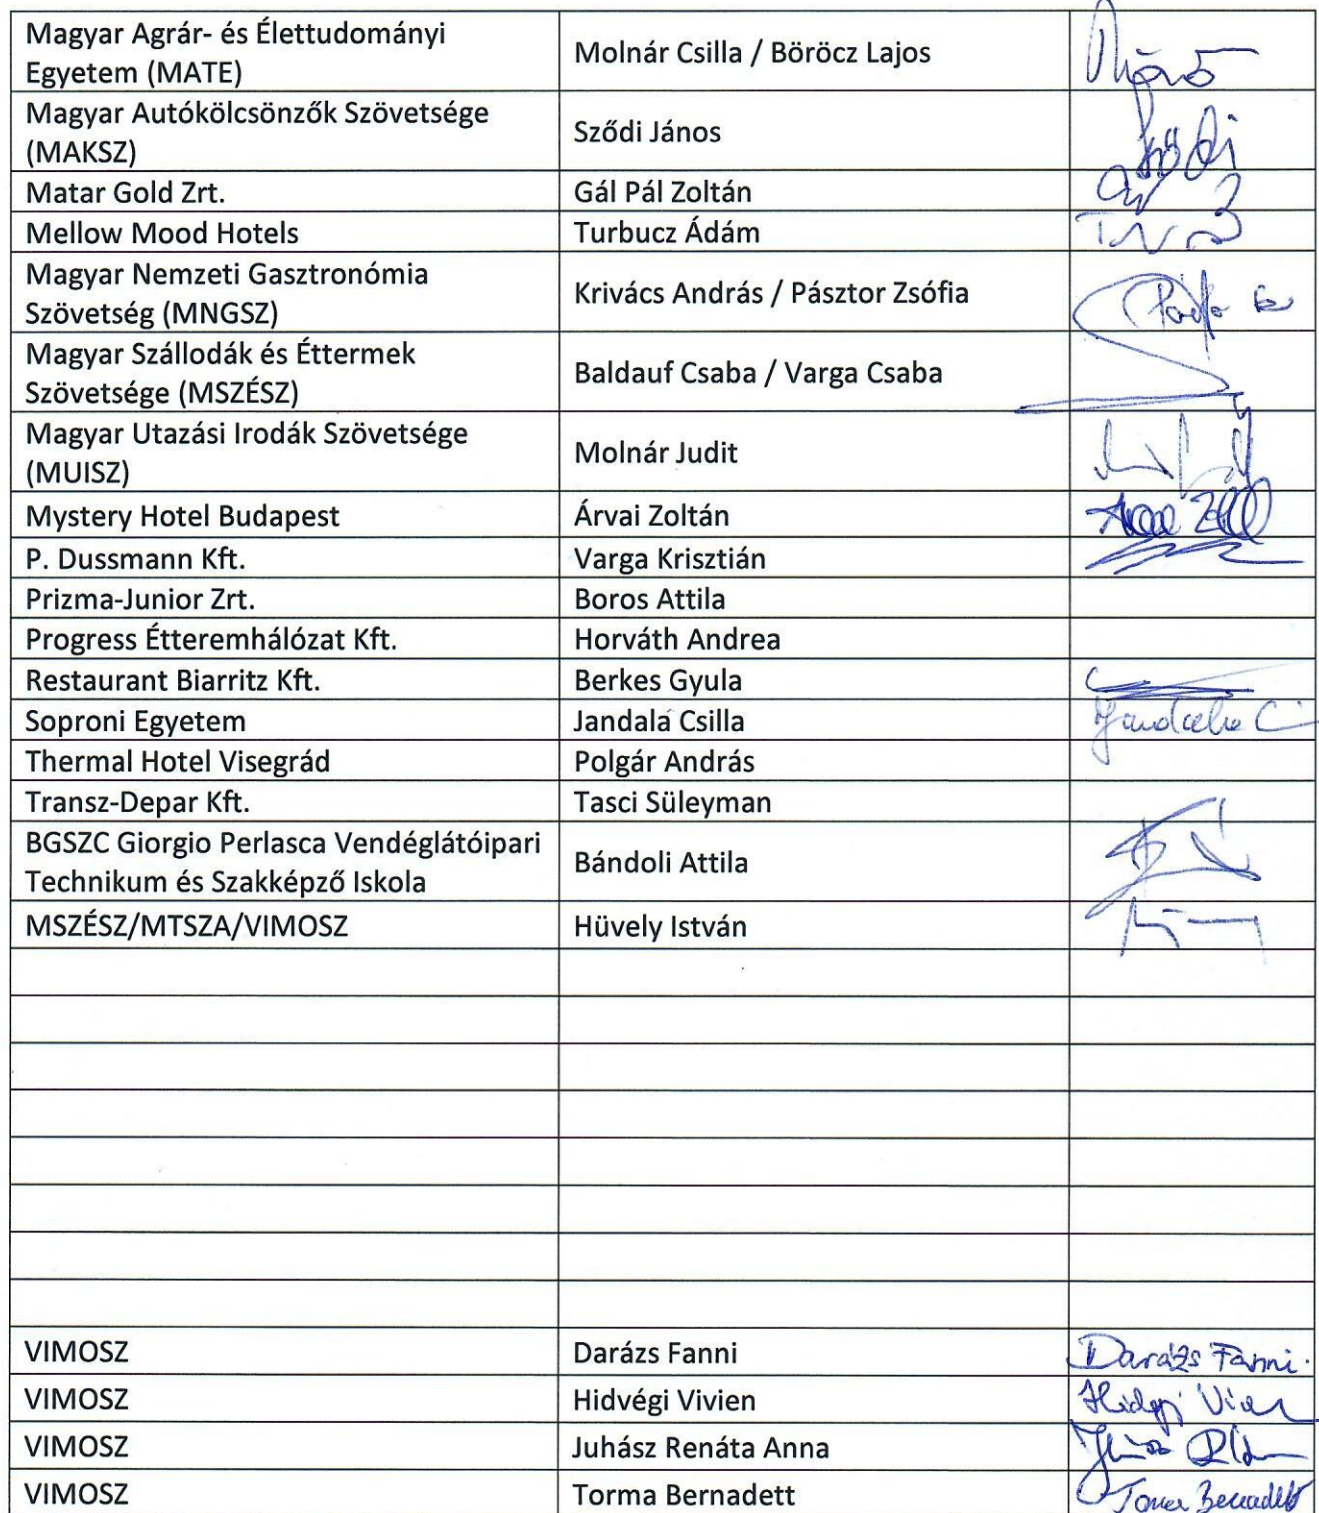 Magyar Agrár- és Élettudományi
Egyetem (MATE)
Molnár Csilla / Böröcz Lajos
Magyar Autókölcsönzők Szövetsége
(MAKSZ)
Sződi János
Sződi
Matar Gold Zrt.
Gál Pál Zoltán
Mellow Mood Hotels
Turbucz Ádám
Magyar Nemzeti Gasztronómia
Szövetség (MNGSZ)
Krivács András / Pásztor Zsófia
Magyar Szállodák és Éttermek
Szövetsége (MSZÉSZ)
Baldauf Csaba / Varga Csaba
Magyar Utazási Irodák Szövetsége
(MUISZ)
Molnár Judit
Mystery Hotel Budapest
Árvai Zoltán
P. Dussmann Kft.
Varga Krisztián
Prizma-Junior Zrt.
Boros Attila
Progress Étteremhálózat Kft.
Horváth Andrea
Restaurant Biarritz Kft.
Berkes Gyula
Soproni Egyetem
Jandala Csilla
Jandala C
Thermal Hotel Visegrád
Polgár András
Transz-Depar Kft.
Tasci Süleyman
BGSZC Giorgio Perlasca Vendéglátóipari
Technikum és Szakképző Iskola
Bándoli Attila
MSZÉSZ/MTSZA/VIMOSZ
Hüvely István
VIMOSZ
Darázs Fanni
Darázs Fanni
VIMOSZ
Hidvégi Vivien
VIMOSZ
Juhász Renáta Anna
VIMOSZ
Torma Bernadett
Torma Bernadett